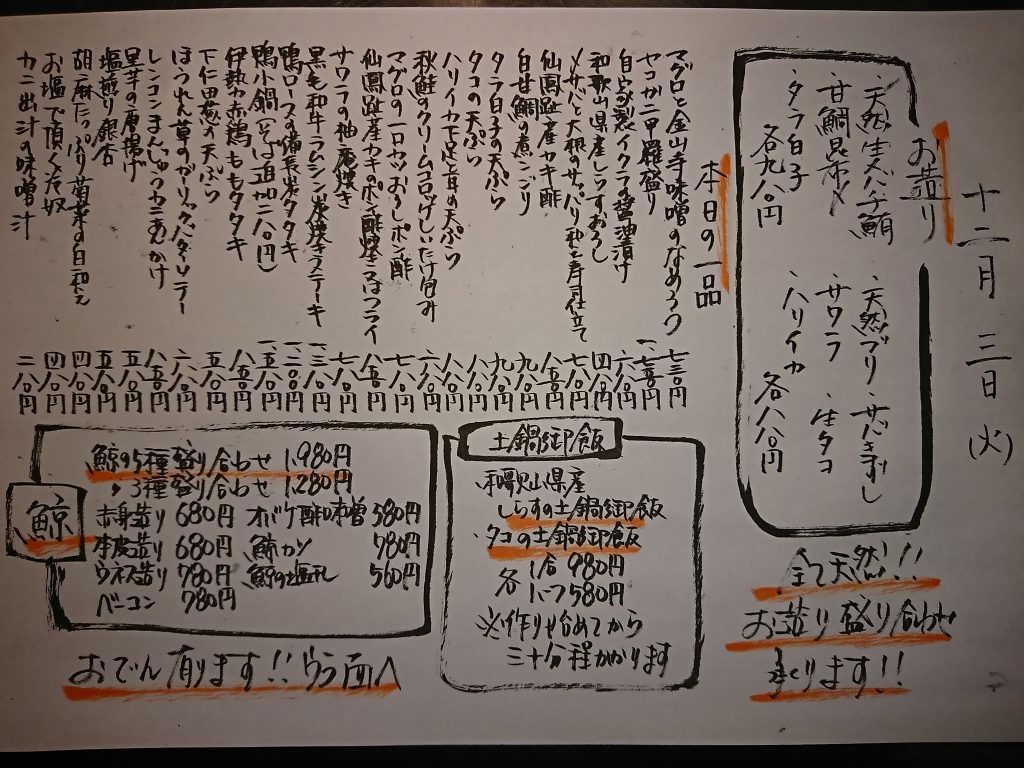 十二月三日(火)
お造り
・天然生バチ鮪
・甘鯛昆布〆
・タラ白子
各九八〇円
・天然ブリ・サバきずし
・サワラ・生タコ
・ハリイカ
各八八〇円
全て天然!!
お造り盛り合わせ
承ります!!
本日の一品
マグロと金山寺味噌のなめろう 七三〇円
セコガニ甲羅盛り
自家製イクラ醤油漬け
和歌山県産しらすおろし 四八〇円
〆サバと大根のサッパリ和え寿司仕立て 七八〇円
仙鳳趾産カキ酢
白甘鯛の煮こごり
タラ白子の天ぷら 九八〇円
タコの天ぷら 八八〇円
ハリイカ下足と茸の天ぷら 八八〇円
秋鮭のクリームコロッケしいたけ包み 六八〇円
マグロの一口カツおろしポン酢 七八〇円
仙鳳趾産カキのポン酢焼き又はフライ
サワラの柚庵焼き 七八〇円
黒毛和牛ラムシン炭焼きステーキ
鴨ロースの備長炭タタキ
鴨小鍋(そば追加二八〇円)
伊勢赤鶏ももタタキ
下仁田葱の天ぷら 五八〇円
ほうれん草のガーリックバターソテー 六八〇円
レンコンまんじゅうカニあんかけ
里芋の唐揚げ
塩煎り銀杏
胡麻たっぷり菊菜の白和え 四八〇円
お塩で頂く冷奴 四八〇円
カニ出汁の味噌汁 二八〇円
土鍋御飯
和歌山県産
しらすの土鍋御飯
・タコの土鍋御飯
各
1合 980円
1/2 580円
※作り始めてから
三十分程かかります
鯨
鯨の5種盛り合わせ 1,980円
〃 3種盛り合わせ 1,280円
赤身造り 680円 オバケ酢味噌 580円
本皮造り 680円 鯨カツ 780円
ウネス造り 780円 鯨の塩 560円
ベーコン 780円
おでん有ります!!ウラ面へ